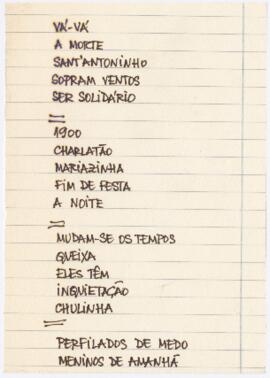 VÁ-VÁ
A MORTE
SANT'ANTONINHO
SOPRAM VENTOS
SER SOLIDÁRIO
1900
CHARLATÃO
MARIAZINHA
FIM DE FESTA
A NOITE
MUDAM-SE OS TEMPOS
QUEIXA
ELES TÊM
INQUIETAÇÃO
CHULINHA
PERFILADOS DE MEDO
MENINOS DE AMANHÃ